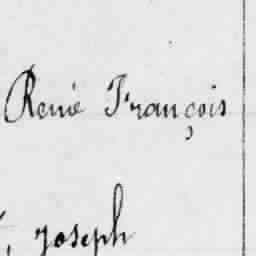 René François
, Joseph